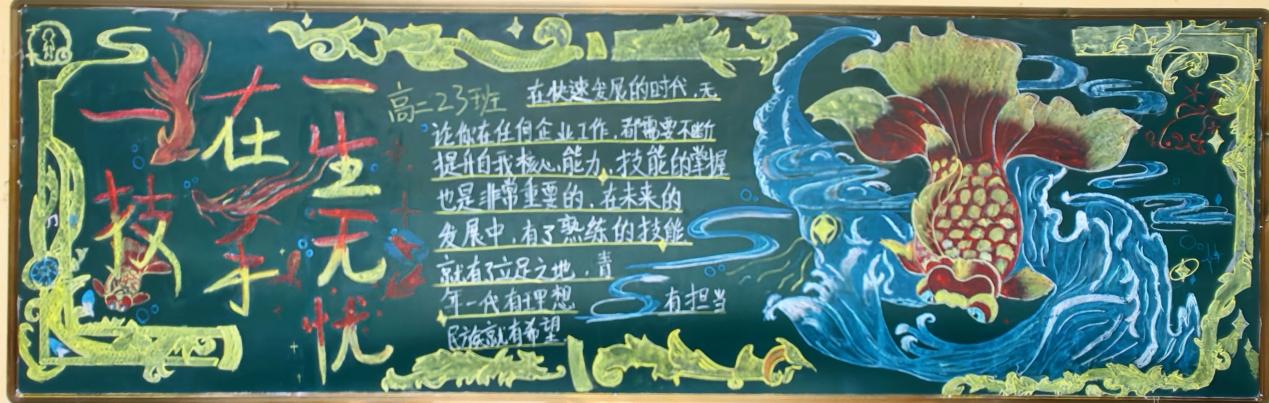 一技
在手
一生无忧
高二23班
在快速发展的时代,无
论你在任何企业工作,都需要不断
提升自我核心能力,技能的掌握
也是非常重要的,在未来的
发展中,有了熟练的技能
就有了立足之地,青
年一代有理想 有担当
民族就有希望